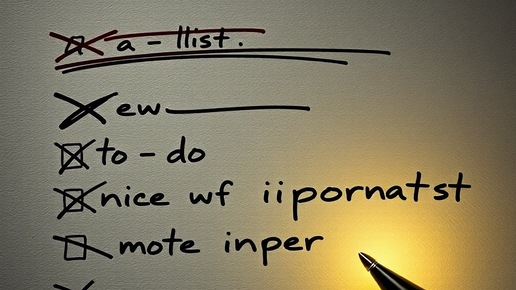 a - llist.
ew
to - do
nice wf iipornatst
mote inper